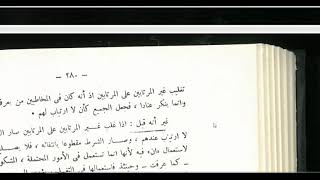 — ٢٨٠ —
تغليب غير المرتابين على المرتابين اذ أنه كان فى المخاطبين من يعرف
وانما ينكر عنادا ، فجعل الجميع كأن لا ارتياب لهم •
غير أنه قيل : اذا غلب غير المرتابين على المرتابين سار ال
لا ارتياب عندهم ، وصار الشرط مقطوعا بانتفائه ، فلا يصلح
لاستعمال «ان» فيه لأنها انما تستعمل فى الأمور المحتملة ، المشكو
— كما عرفت — وحينئذ